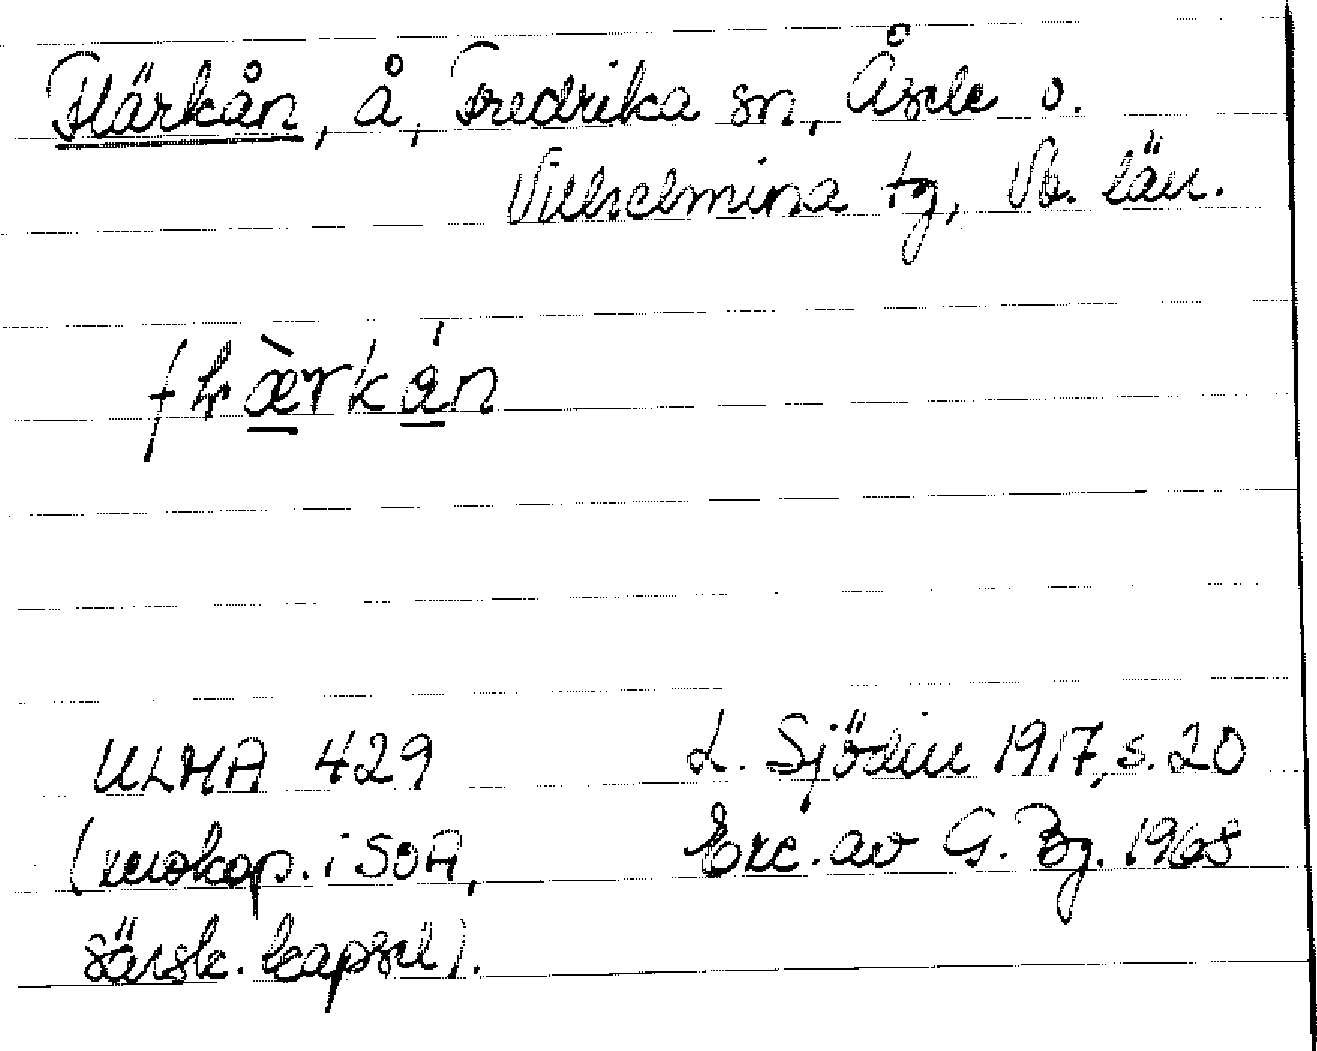 Flärkån, å, Fredrika sn, Åsele o.
Vilhelmina tg, Vb. län.
ULMA 429
L. Sjödin 1917, s. 20
(xerokop. i SOA,
Exc. av G. Bg. 1968
särsk. kapsel).